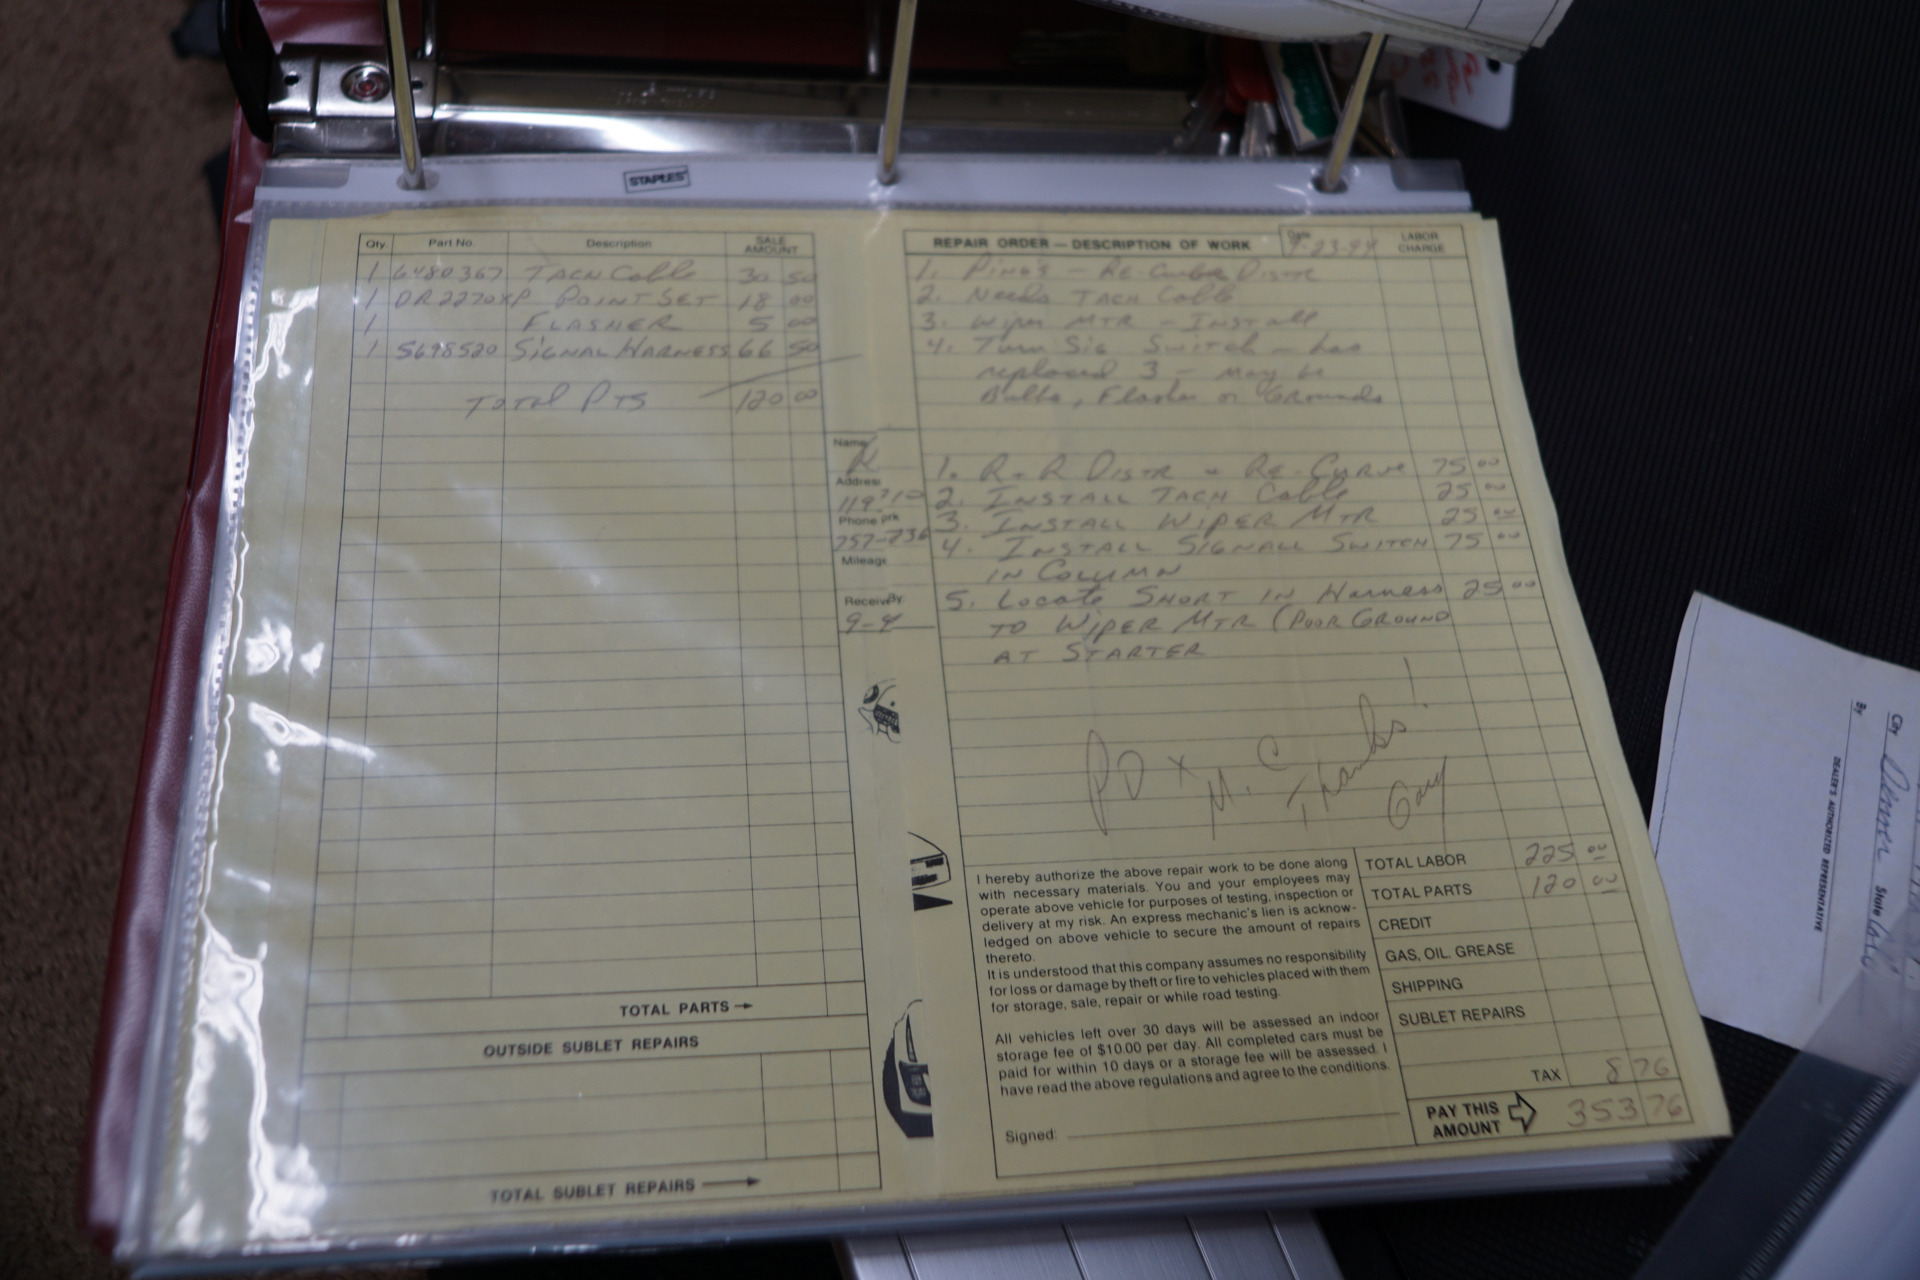 STAPLES
Qty. Part No. Description SALE AMOUNT
1 6480367 TACH Cable 30 50
1 DR2270XP POINT SET 18 00
1 FLASHER 5 00
1 5698520 SIGNAL HARNESS 66 50
TOTAL PTS 120 00
TOTAL PARTS →
OUTSIDE SUBLET REPAIRS
TOTAL SUBLET REPAIRS →
Name
Address
Phone
757-736
Mileage
Receiv By:
9-4
REPAIR ORDER — DESCRIPTION OF WORK Date 9-23-94 LABOR CHARGE
1. Pings - Re-Curve Distr
2. Needs TACH Cable
3. Wiper MTR - Install
4. Turn Sig Switch - has
replaced 3 - May be
Bulbs, Flasher or Grounds
1. R+R DISTR + RE-CURVE 75 00
2. INSTALL TACH Cable 25 00
3. INSTALL WIPER MTR 25 00
4. INSTALL SIGNALL SWITCH 75 00
IN COLUMN
5. Locate SHORT IN Harness 25 00
TO WIPER MTR (POOR GROUND
AT STARTER
PD x M.C
Thanks!
Gary
I hereby authorize the above repair work to be done along
with necessary materials. You and your employees may
operate above vehicle for purposes of testing, inspection or
delivery at my risk. An express mechanic's lien is acknow-
ledged on above vehicle to secure the amount of repairs
thereto.
It is understood that this company assumes no responsibility
for loss or damage by theft or fire to vehicles placed with them
for storage, sale, repair or while road testing.
All vehicles left over 30 days will be assessed an indoor
storage fee of $10.00 per day. All completed cars must be
paid for within 10 days or a storage fee will be assessed. I
have read the above regulations and agree to the conditions.
Signed:
TOTAL LABOR 225 00
TOTAL PARTS 120 00
CREDIT
GAS, OIL. GREASE
SHIPPING
SUBLET REPAIRS
TAX 8 76
PAY THIS AMOUNT 353 76
City State
By
DEALER'S AUTHORIZED REPRESENTATIVE